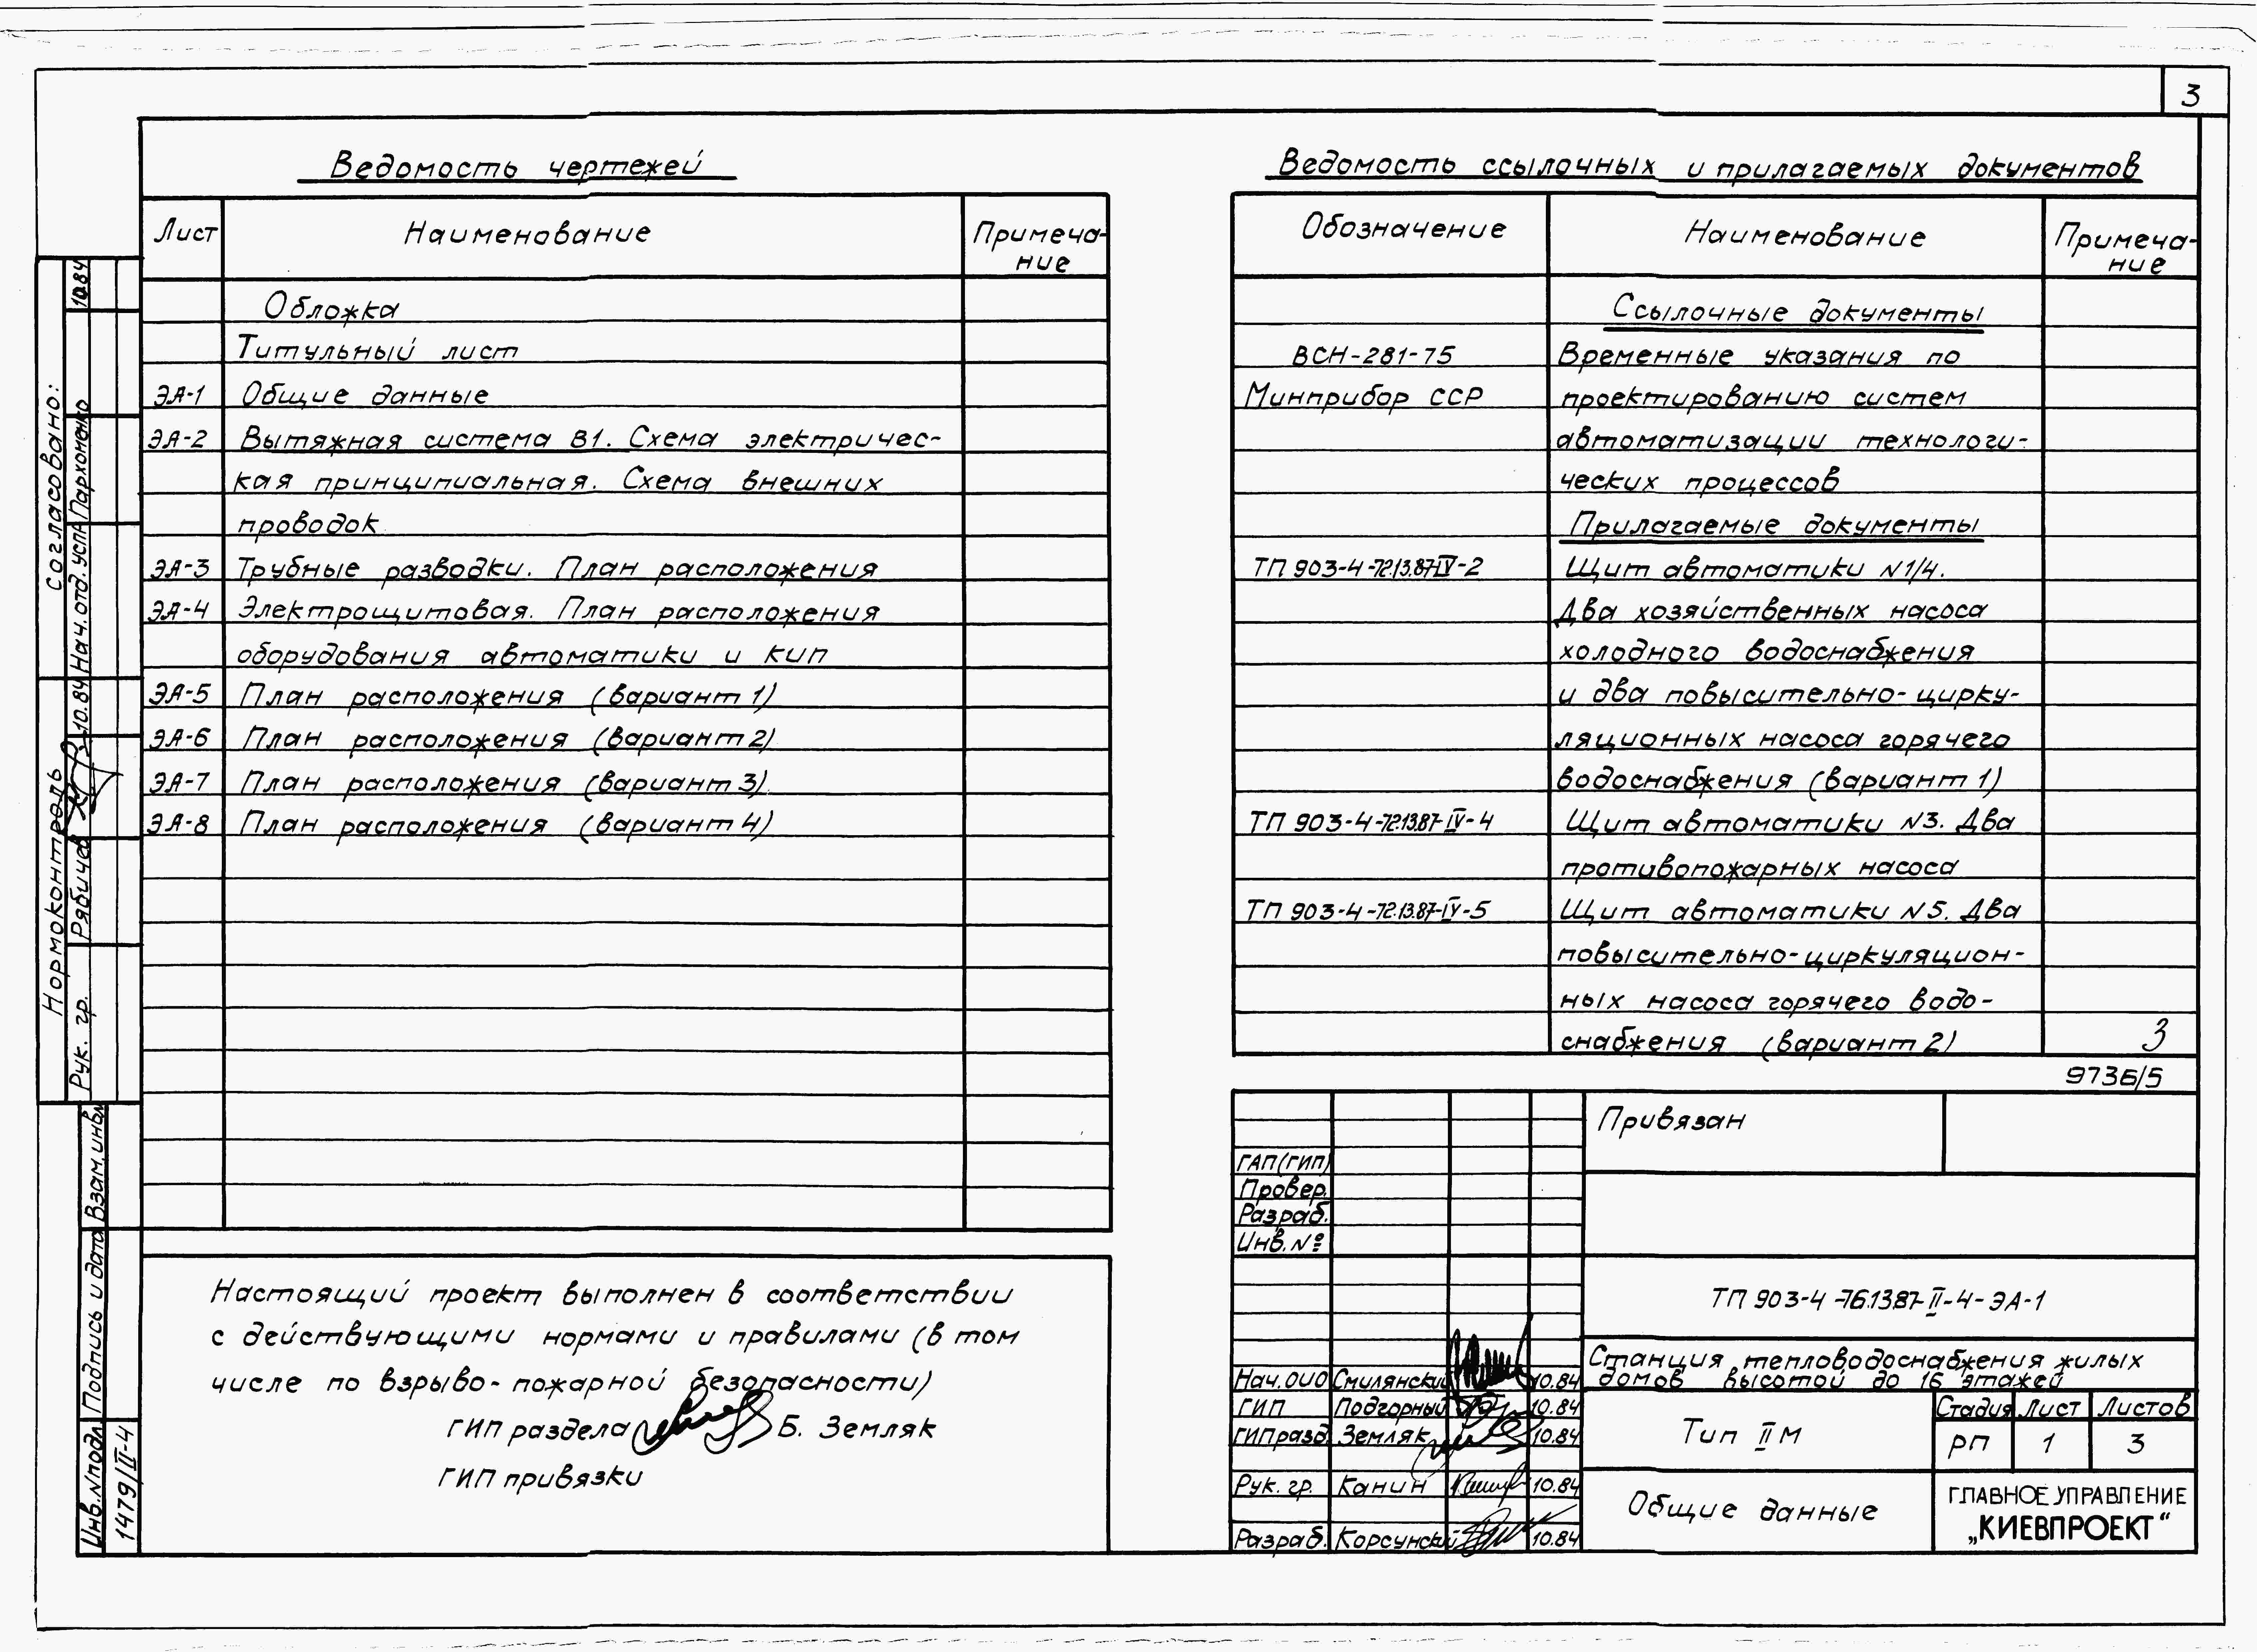 3
Ведомость чертежей
Лист Наименование Примеча-
ние
Обложка
Титульный лист
ЭА-1 Общие данные
ЭА-2 Вытяжная система В1. Схема электричес-
кая принципиальная. Схема внешних
проводок
ЭА-3 Трубные разводки. План расположения
ЭА-4 Электрощитовая. План расположения
оборудования автоматики и КИП
ЭА-5 План расположения (вариант 1)
ЭА-6 План расположения (вариант 2)
ЭА-7 План расположения (вариант 3)
ЭА-8 План расположения (вариант 4)
Настоящий проект выполнен в соответствии
с действующими нормами и правилами (в том
числе по взрыво-пожарной безопасности)
ГИП раздела Б. Земляк
ГИП привязки
Ведомость ссылочных и прилагаемых документов
Обозначение Наименование Примеча-
ние
Ссылочные документы
ВСН-281-75 Временные указания по
Минприбор ССР проектированию систем
автоматизации технологи-
ческих процессов
Прилагаемые документы
ТП 903-4-72.13.87-IV-2 Щит автоматики N1/4.
Два хозяйственных насоса
холодного водоснабжения
и два повысительно-цирку-
ляционных насоса горячего
водоснабжения (вариант 1)
ТП 903-4-72.13.87-IV-4 Щит автоматики N3. Два
противопожарных насоса
ТП 903-4-72.13.87-IV-5 Щит автоматики N5. Два
повысительно-циркуляцион-
ных насоса горячего водо-
снабжения (вариант 2) 3
9736/5
Привязан
ГАП(ГИП)
Провер.
Разраб.
Инв. №
ТП 903-4-76.13.87-II-4-ЭА-1
Станция тепловодоснабжения жилых
домов высотой до 16 этажей
Нач. ОИО Смилянский 10.84
ГИП Подгорный 10.84
ГИП разд. Земляк 10.84
Рук. гр. Канин 10.84
Разраб. Корсунский 10.84
Тип II М
Стадия Лист Листов
РП 1 3
Общие данные
ГЛАВНОЕ УПРАВЛЕНИЕ
„КИЕВПРОЕКТ“
согласовано:
Нач. отд. УСПА Пархоменко 10.84
Нормоконтроль
Рук. гр. Рябичев 10.84
Взам. инв.
Подпись и дата
Инв. N подл.
1479/II-4